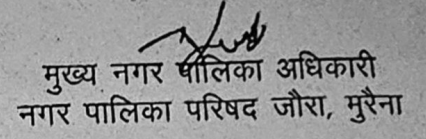 मुख्य नगर पालिका अधिकारी
नगर पालिका परिषद जौरा, मुरैना